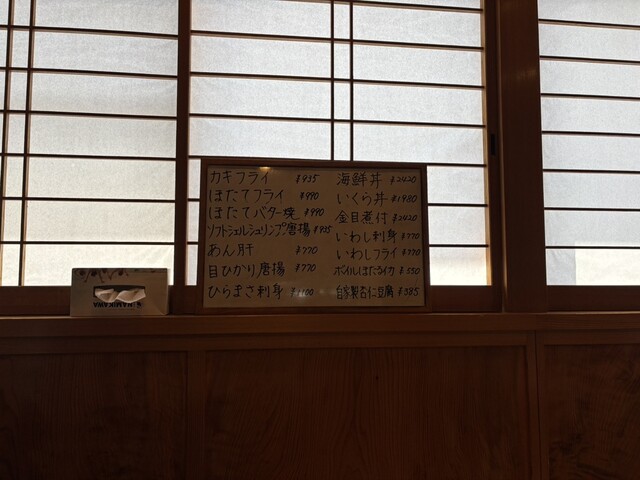 カキフライ ¥935
ほたてフライ ¥990
ほたてバター焼 ¥990
ソフトシェルシュリンプ唐揚 ¥935
あん肝 ¥770
目ひかり唐揚 ¥770
ひらまさ刺身 ¥1100
海鮮丼 ¥2420
いくら丼 ¥1980
金目煮付 ¥2420
いわし刺身 ¥770
いわしフライ ¥770
ボイルほたるイカ ¥550
自家製杏仁豆腐 ¥385
KAMIKAWA